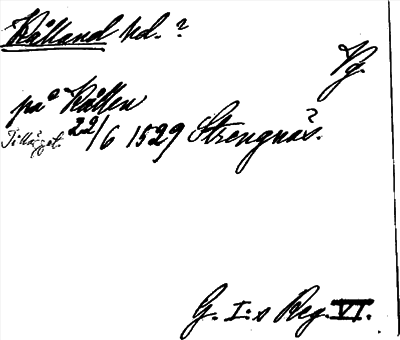 Kålland hd. ?
Vg.
på Kållen
Tillägget. 22/6 1529 Strengnäs. ?
G. I:s Reg. VI.